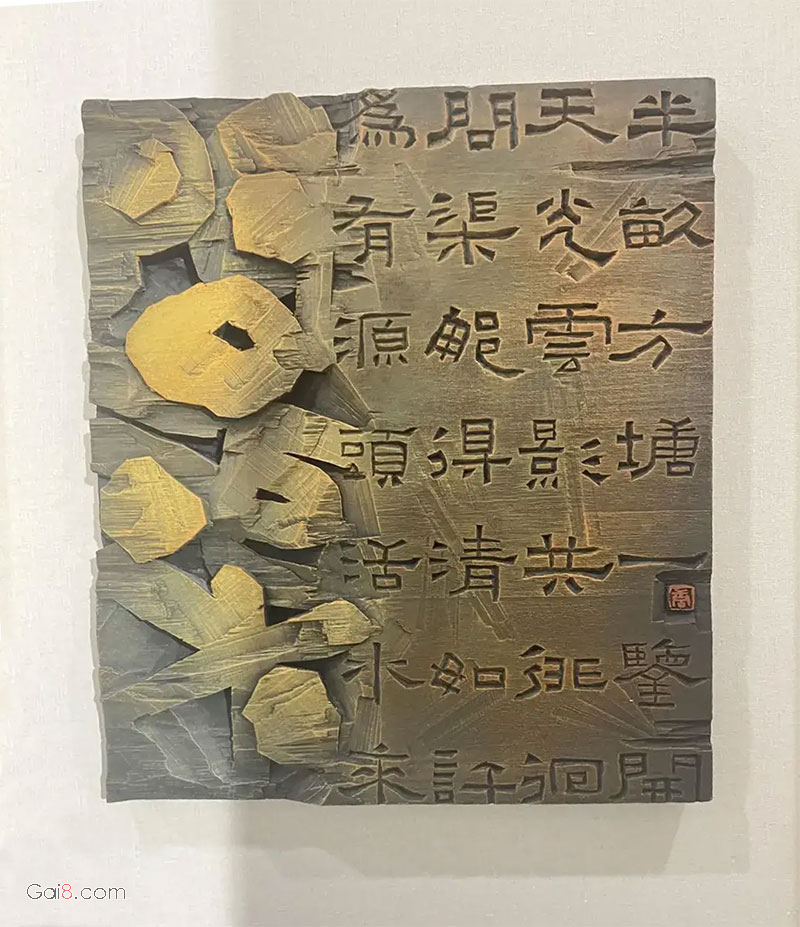 半畝方塘一鑒開
天光雲影共徘徊
問渠那得清如許
爲有源頭活水來
Gai8.com